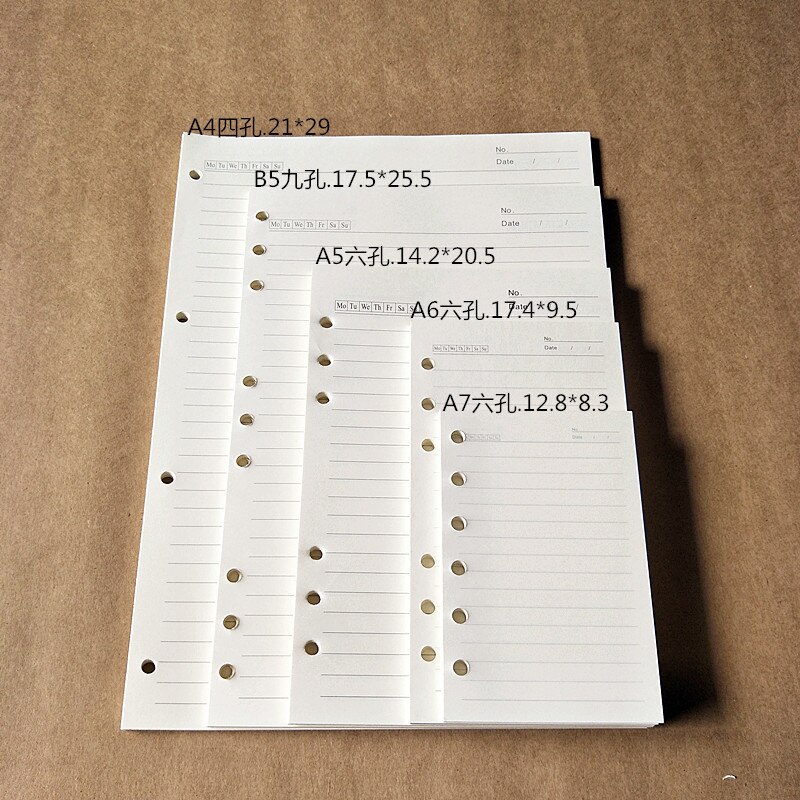 A4四孔.21*29
No.
Mo Tu We Th Fr Sa Su
Date / /
B5九孔.17.5*25.5
No.
Mo Tu We Th Fr Sa Su
Date / /
A5六孔.14.2*20.5
No.
Mo Tu We Th Fr Sa Su
Date / /
A6六孔.17.4*9.5
No.
Mo Tu We Th Fr Sa Su
Date / /
A7六孔.12.8*8.3
No.
Date / /